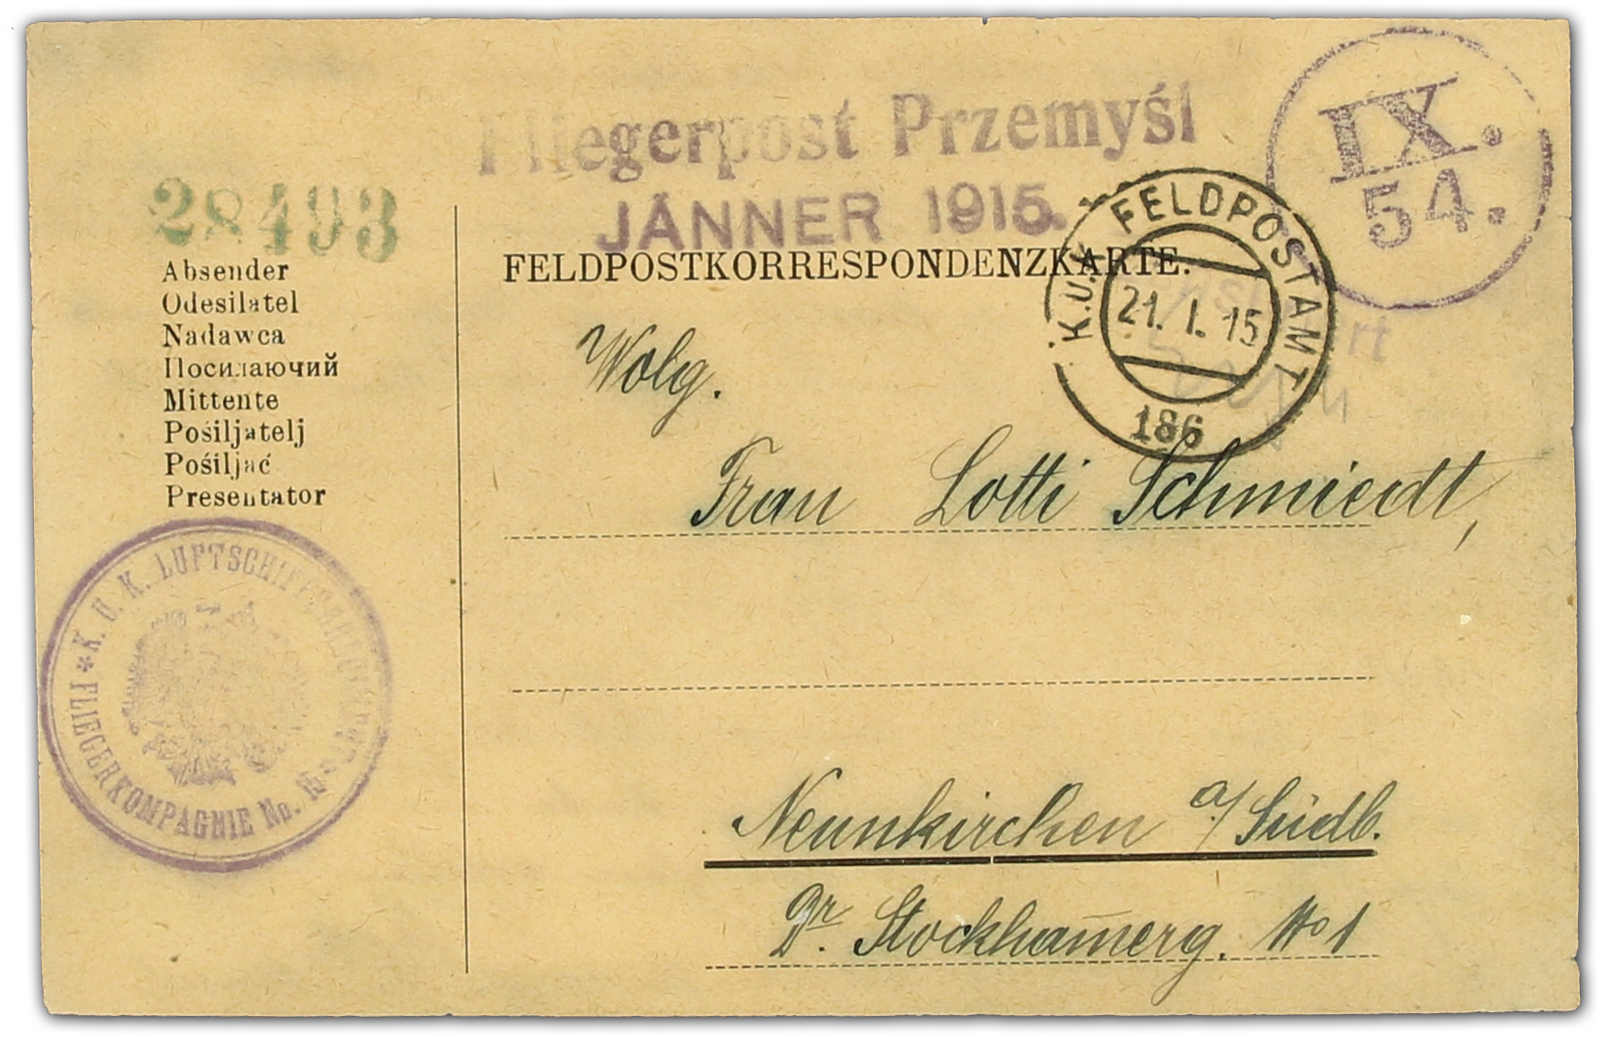 Fliegerpost Przemyśl
JÄNNER 1915.
IX.
54.
28493
FELDPOSTKORRESPONDENZKARTE.
K.U.K. FELDPOSTAMT
21. I. 15
186
Absender
Odesilatel
Nadawca
Посилаючий
Mittente
Pošiljatelj
Pošiljač
Presentator
Wolg.
Frau Lotti Schmiedt,
K. U. K.
* FLIEGERKOMPAGNIE No.
Neunkirchen a/Südb.
Dr. Stockhamerg. No 1